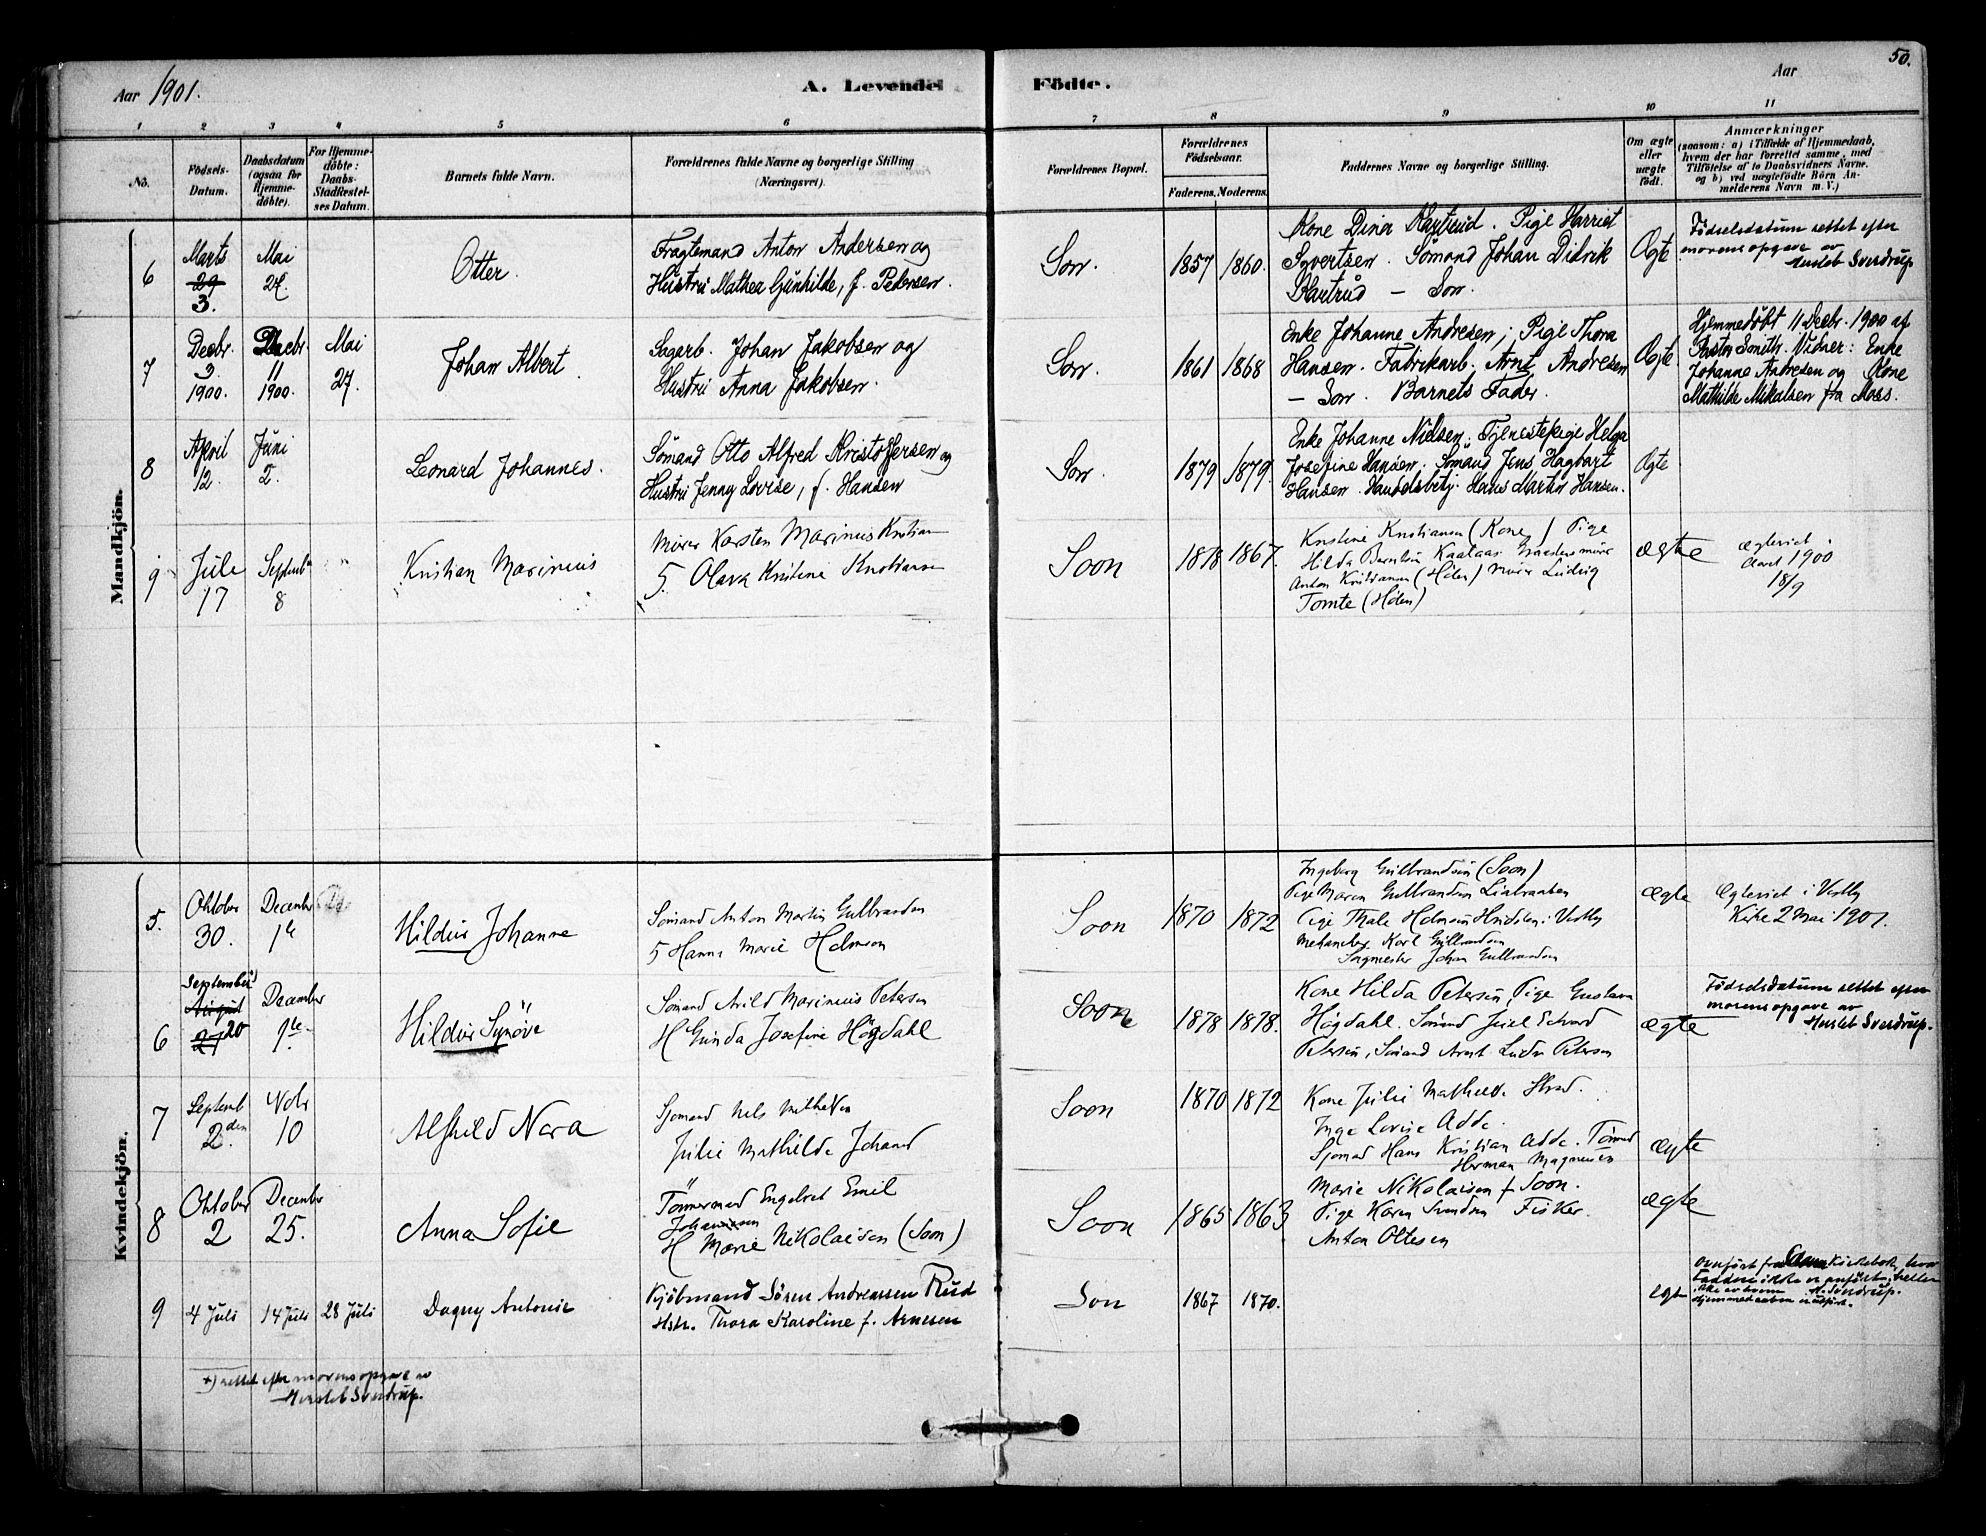 50.
Aar 1901.
A. Levendel Födte.
Aar
1 2 3 4 5 6 7 8 9 10 11
No.
Födsels-
Datum.
Daabsdatum
(ogsaa for
Hjemme-
döbte).
For Hjemme-
döbte:
Daabs-
Stadfæstel-
ses Datum.
Barnets fulde Navn.
Forældrenes fulde Navne og borgerlige Stilling
(Næringsvei).
Forældrenes Bopæl.
Forældrenes
Födselsaar.
Faderens. Moderens.
Faddernes Navne og borgerlige Stilling.
Om ægte
eller
uægte
födt.
Anmærkninger
(saasom: a) i Tilfælde af Hjemmedaab,
hvem der har forrettet samme, med
Tilföielse af to Daabsvidners Navne,
og b) ved uægtefödte Börn An-
melderens Navn m. V.)
Mandkjön.
6
Marts
29
3.
Mai
27.
Otter.
Fragtemand Anton Andersen og
Hustru Mathea Gunhilde, f. Pedersen.
Son.
1857 1860.
Kone Dina Klartrud. Pige Harriet
Syvertsen. Sömand Johan Didrik
Klartrud — Son.
Ægte
Födselsdatum rettet efter
morens opgave av
Hersleb Sverdrup
7
Decbr.
3.
1900.
Decbr.
11
1900.
Mai
27.
Johan Albert.
Sagarb. Johan Jakobsen og
Hustru Anna Jakobsen.
Son.
1861 1868
Enke Johanne Andresen; Pige Thora
Hansen. Fabrikarb. Arnt Andresen
— Son. Barnets Fader.
Ægte
Hjemmedöbt 11 Decbr. 1900 af
Pastor Smith. Vidner: Enke
Johanne Andresen og Kone
Mathilde Mikalsen fra Moss.
8
April
12.
Juni
2.
Leonard Johannes.
Sömand Otto Alfred Kristoffersen og
Hustru Jenny Lovise, f. Hansen
Son.
1879 1879.
Enke Johanne Nielsen; Tjenestepige Helga
Josefine Hansen. Sömand Jens Hagbart
Hansen. Handelsbetj. Hans Martin Hansen.
Ægte
9
Juli
17
Septemb
8
Kristian Marinius
Murer Karsten Marinius Kristian
5. Olava Kristine Kristiansen
Soon
1878 1867.
Kristine Kristiansen (Kone) Pige
Hilda
Anton Kristiansen (Hölen) Murer Ludvig
Tomte (Hölen)
ægte
Ægteviet i
Aaret 1900
18/9
Kvindekjön.
5.
Oktober
30.
December
1ste
Hildur Johanne
Sömand Anton Martin Gulbrandsen
5 Hanna Marie Holmsen
Soon
1870 1872
Ingeborg Gulbrandsen (Soon)
Pige Maren Gulbrandsen
Pige Thale Holmsen Hvidsten i Vestby
Karl Gulbrandsen
Sagmester Johan Gulbrandsen
ægte
Ægteviet i Vestby
Kirke 2 Mai 1901.
6
September
August
27 20
December
1ste
Hildur Synöve
Sömand Arild Marinius Petersen
H Gunda Josefine Högdahl
Soon
1878 1878.
Kone Hilda Petersen, Pige Gustava
Högdahl. Sömand Juel Edvard
Petersen, Sömand Arnt Ludv Petersen
ægte
Födselsdatum rettet efter
morens opgave av
Hersleb Sverdrup.
7
Septemb
2den
Novbr
10
Alfhild Nora
Sjömand Nels
Julie Mathilde
Soon
1870 1872
Kone Julie Mathilde
Inga Lovise Adde.
Sjömand Hans Kristian Adde. Tömmd
Herman Magnusen
ægte
8
Oktober
2
December
25.
Anna Sofie
Tömmermand Engelbret Emil
Johannesen
H Marie Nikolaisen (Soon)
Soon
1865 1863
Marie Nikolaisen f Soon.
Pige Karen Svendsen Fisker.
Anton Oltesen
ægte
9
4 Juli
14 Juli
28 Juli
Dagny Antonie
Kjöbmand Sören Andreassen Rud
Hstr. Thora Karoline f. Arnesen
Son
1867 1870.
Egte
Overfört fra Kirkebok, hvor
Faddere ikke er anfört, heller
ikke av hvem H. Sverdrup.
Hjemmedaaben er utfört.
+) rettet efter morens opgave av
Hersleb Sverdrup.